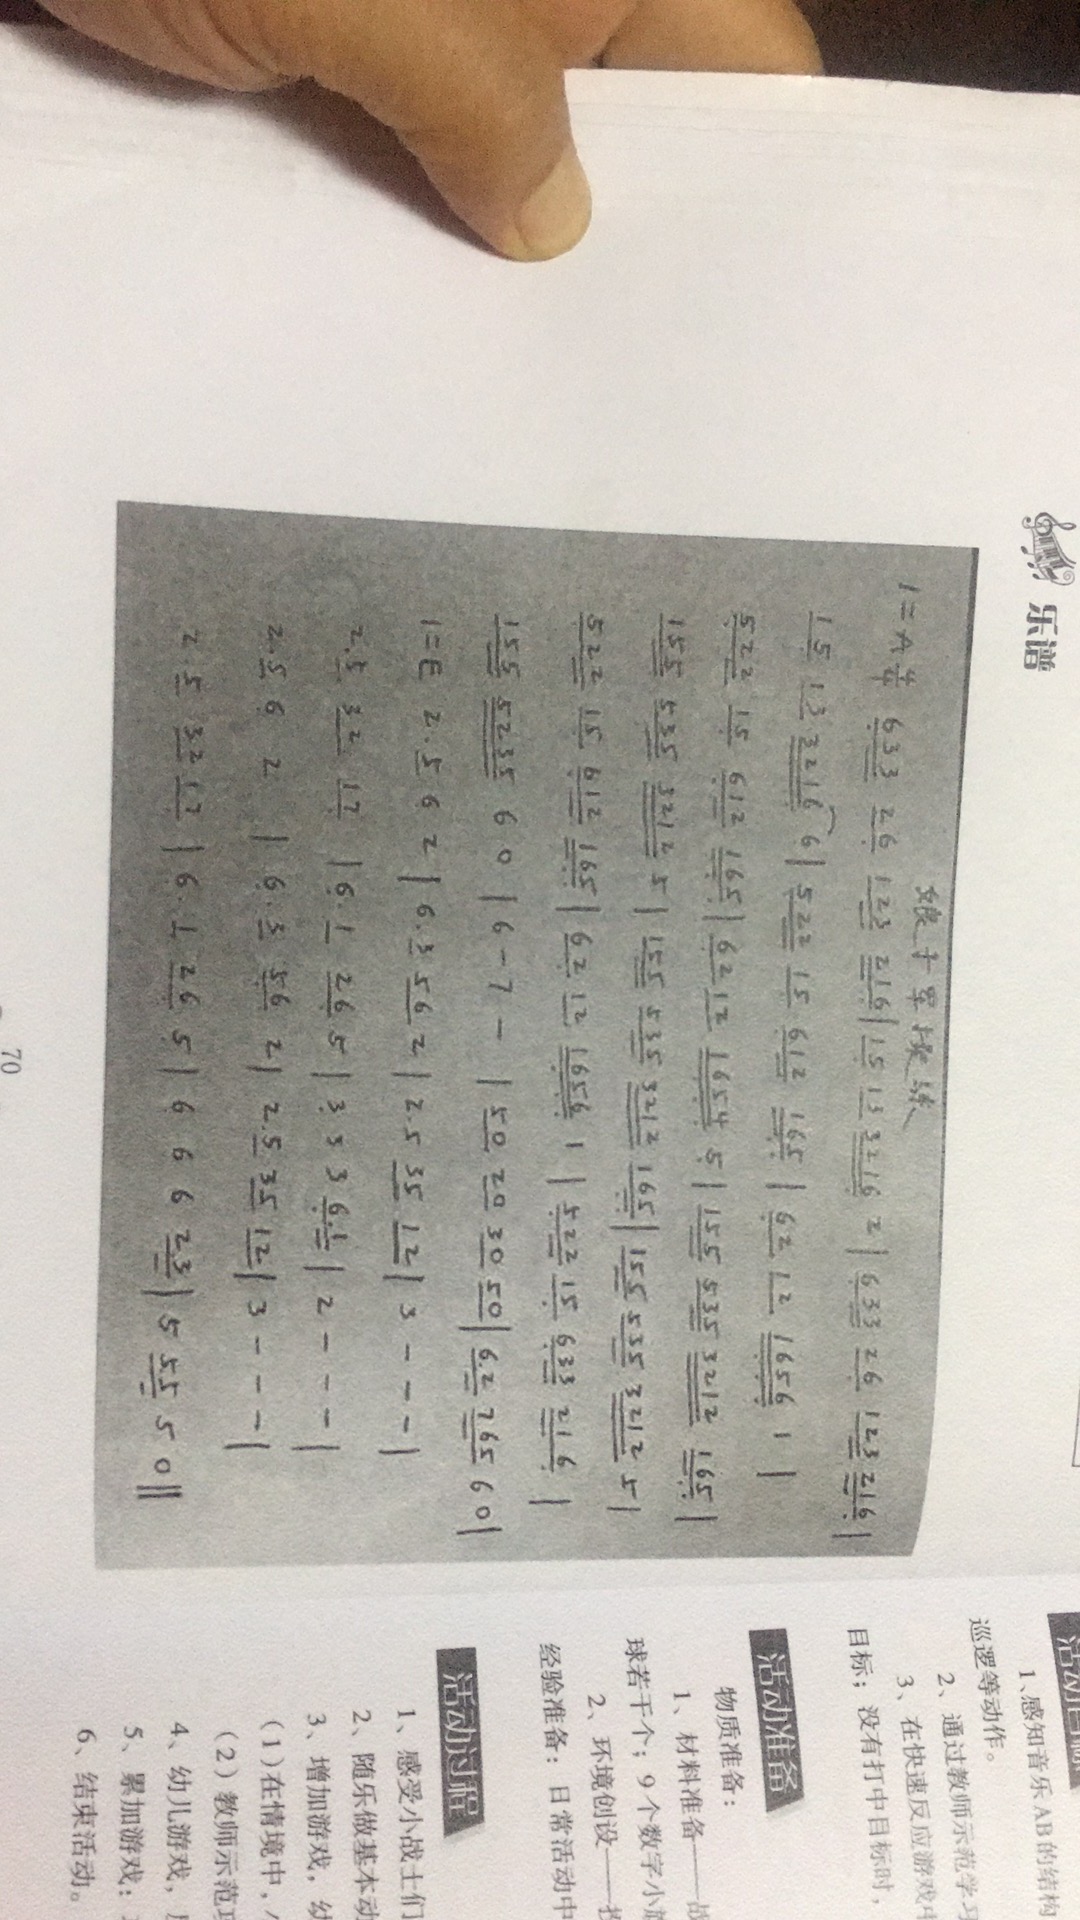 乐谱
娘子军操练
1=A 4/4 633 26 123 216 | 15 13 3216 2 | 633 26 123 216 |
15 13 3216 6 | 522 15 612 165 | 62 12 1656 1 |
522 15 612 165 | 62 12 1654 5 | 155 535 3212 165 |
155 535 3212 5 | 155 535 3212 165 | 155 535 3212 5 |
522 15 612 165 | 62 12 1656 1 | 522 15 633 216 |
155 5235 6 0 | 6 - 7 - | 50 20 30 50 | 6.2 765 6 0 |
1=E 2.5 6 2 | 6.3 56 2 | 2.5 35 12 | 3 - - - |
2.5 32 17 | 6.1 26 5 | 3 3 3 6.1 | 2 - - - |
2.5 6 2 | 6.3 56 2 | 2.5 35 12 | 3 - - - |
2.5 32 17 | 6.1 26 5 | 6 6 6 2.3 | 5 5.5 5 0 ||
70
1、感知音乐AB的结构
巡逻等动作。
2、通过教师示范学习
3、在快速反应游戏中
目标；没有打中目标时，
活动准备
物质准备：
1、材料准备——战
球若干个；9个数字小旗
2、环境创设——
经验准备：日常活动中
活动过程
1、感受小战士们
2、随乐做基本动
3、增加游戏，幼
（1）在情境中，
（2）教师示范
4、幼儿游戏，
5、累加游戏：
6、结束活动。